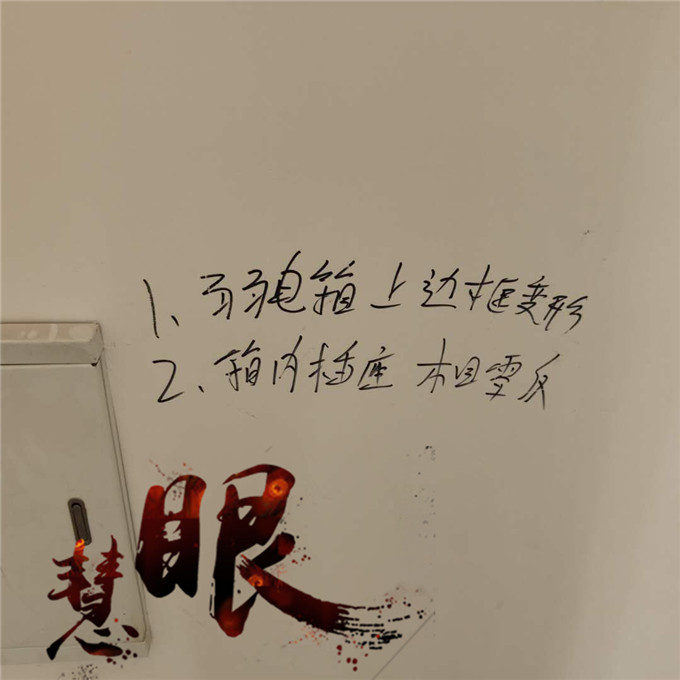 1、弱电箱上边框变形
2、箱内插座相零反
慧眼